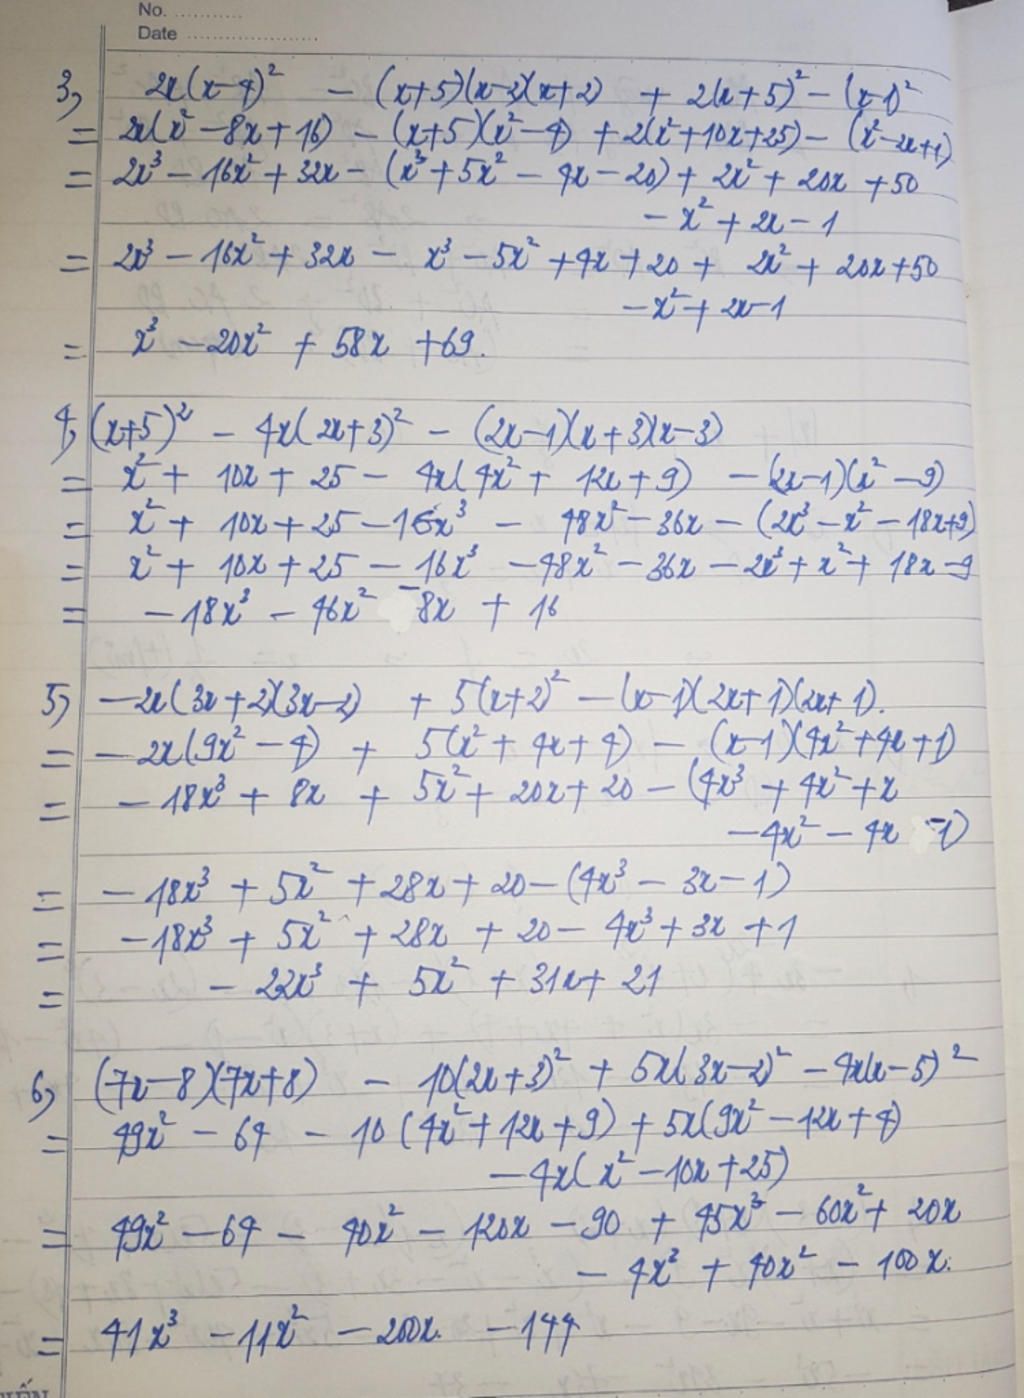 No. ............
Date ......................
3, 2x(x-4)² - (x+5)(x-2)(x+2) + 2(x+5)² - (x-1)²
= 2x(x² - 8x + 16) - (x+5)(x² - 4) + 2(x² + 10x + 25) - (x² - 2x + 1)
= 2x³ - 16x² + 32x - (x³ + 5x² - 4x - 20) + 2x² + 20x + 50
- x² + 2x - 1
= 2x³ - 16x² + 32x - x³ - 5x² + 4x + 20 + 2x² + 20x + 50
- x² + 2x - 1
= x³ - 20x² + 58x + 69.
4, (x+5)² - 4x(2x+3)² - (2x-1)(x+3)(x-3)
= x² + 10x + 25 - 4x(4x² + 12x + 9) - (2x-1)(x² - 9)
= x² + 10x + 25 - 16x³ - 48x² - 36x - (2x³ - x² - 18x + 9)
= x² + 10x + 25 - 16x³ - 48x² - 36x - 2x³ + x² + 18x - 9
= - 18x³ - 46x² - 8x + 16
5, - 2x(3x+2)(3x-2) + 5(x+2)² - (x-1)(2x+1)(2x+1).
= - 2x(9x² - 4) + 5(x² + 4x + 4) - (x-1)(4x² + 4x + 1)
= - 18x³ + 8x + 5x² + 20x + 20 - (4x³ + 4x² + x
- 4x² - 4x - 1)
= - 18x³ + 5x² + 28x + 20 - (4x³ - 3x - 1)
= - 18x³ + 5x² + 28x + 20 - 4x³ + 3x + 1
= - 22x³ + 5x² + 31x + 21
6, (7x-8)(7x+8) - 10(2x+3)² + 5x(3x-2)² - 4x(x-5)²
= 49x² - 64 - 10(4x² + 12x + 9) + 5x(9x² - 12x + 4)
- 4x(x² - 10x + 25)
= 49x² - 64 - 40x² - 120x - 90 + 45x³ - 60x² + 20x
- 4x³ + 40x² - 100x.
= 41x³ - 11x² - 200x. - 144